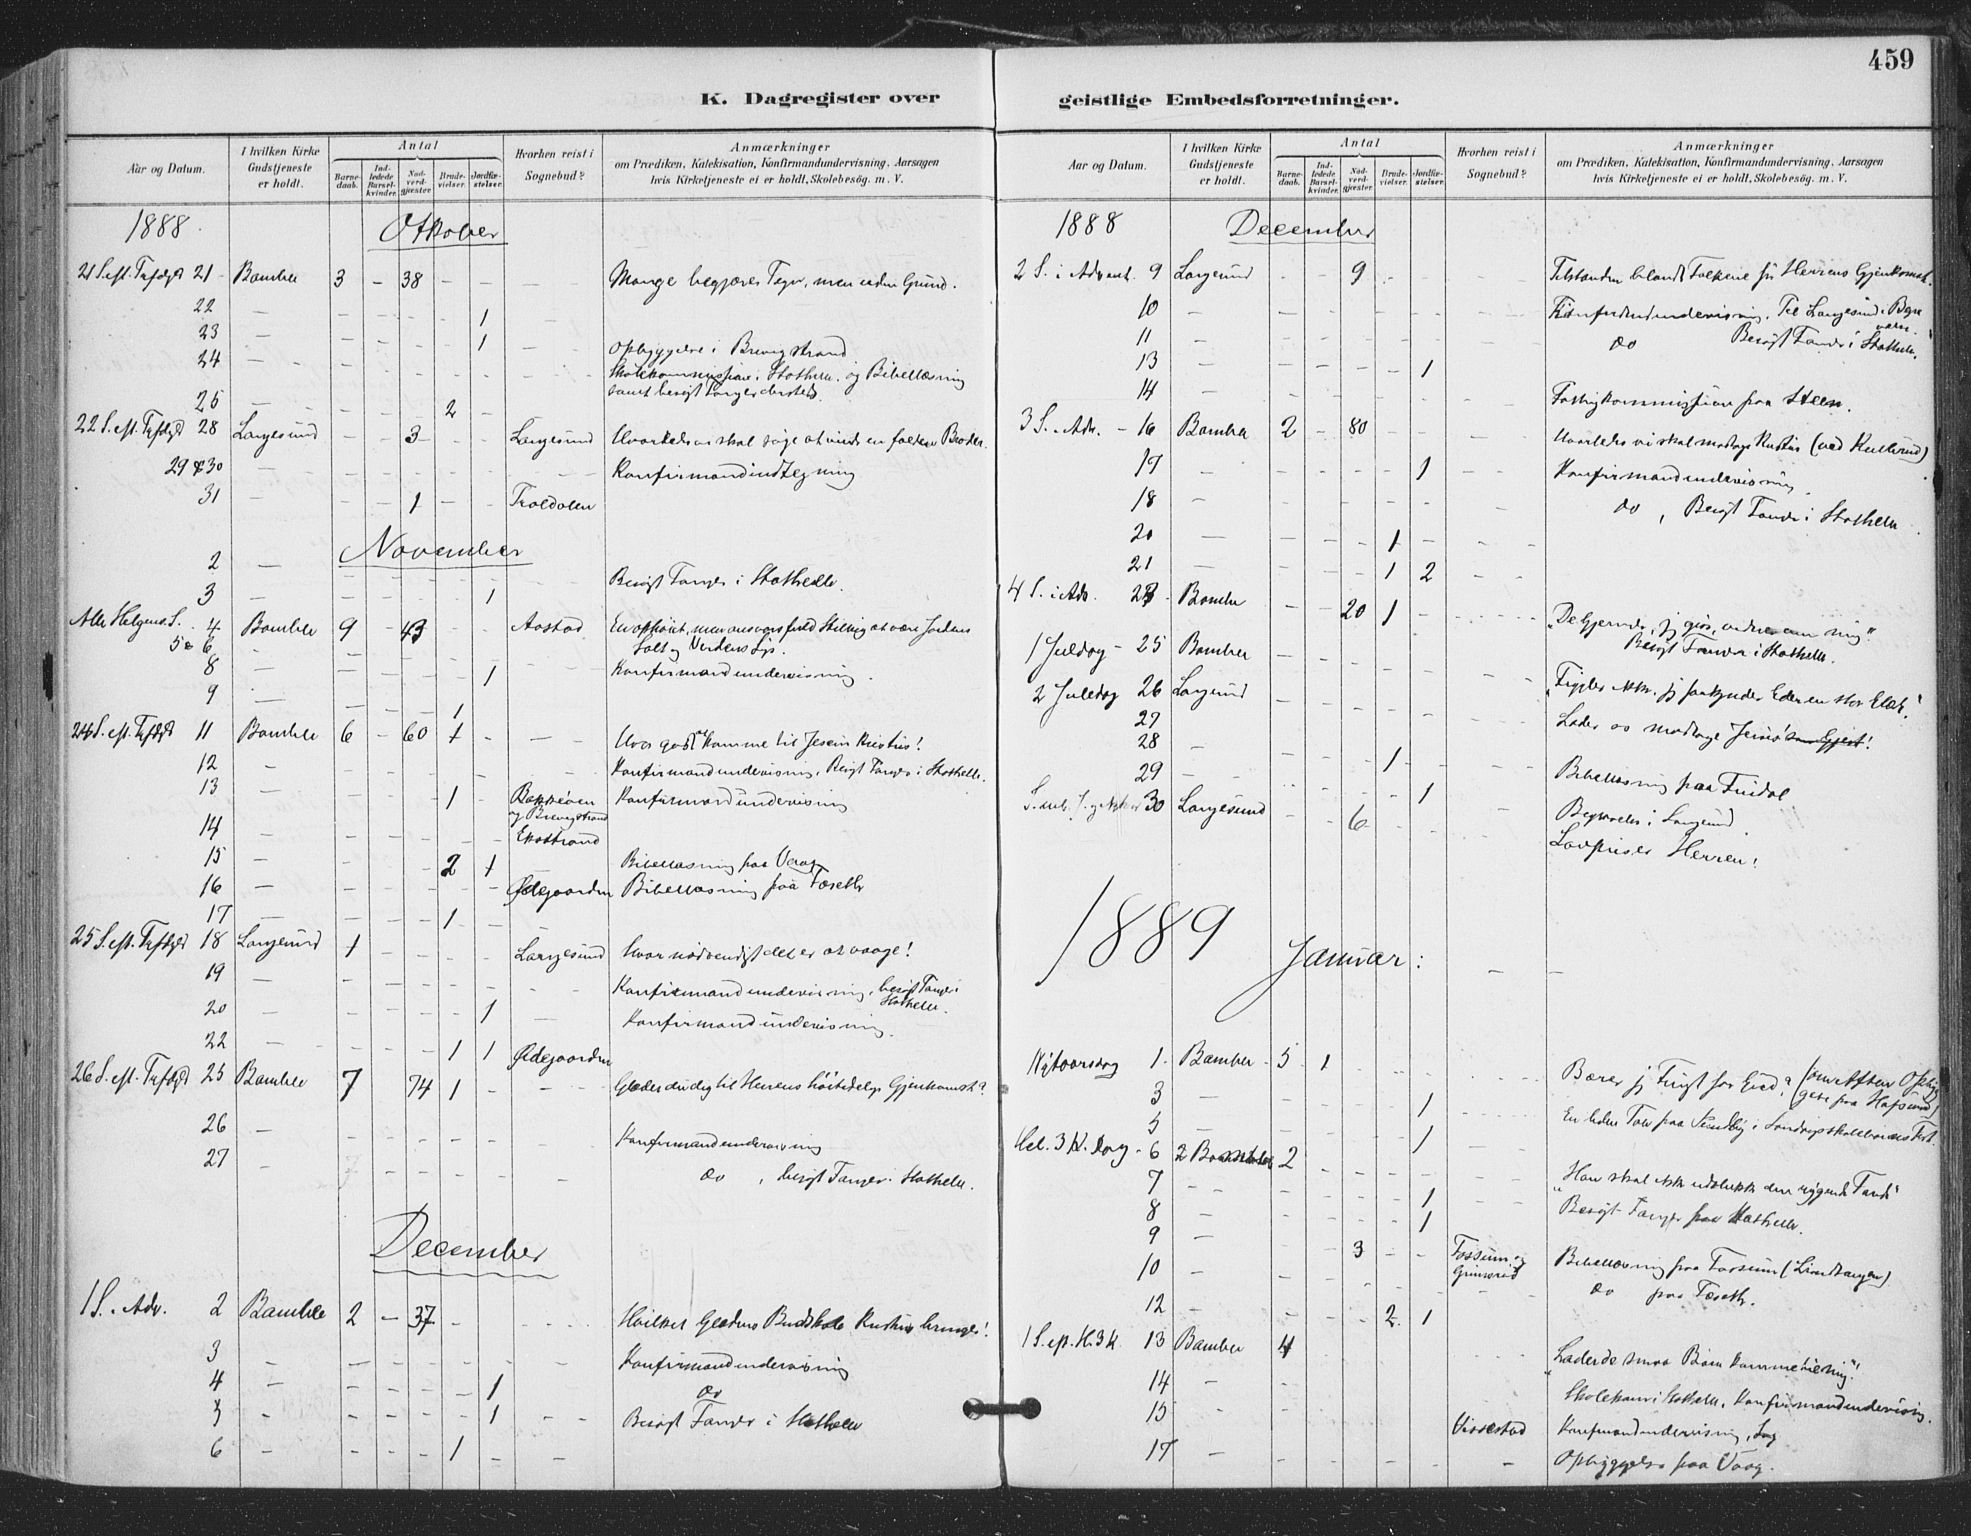 459
K. Dagregister over
Aar og Datum.
I hvilken Kirke Gudstjeneste er holdt.
Antal
Barnedaab.
Indledede Barselkvinder.
Nadverdgjæster.
Brudevielser.
Jordfæstelser.
Hvorhen reist i Sognebud?
Anmærkninger
om Prædiken, Katekisation, Konfirmandundervisning, Aarsagen
hvis Kirketjeneste ei er holdt, Skolebesög. m. V.
1888. Oktober
21 S. eft. Trefdgh 21 - Bamble 3 - 38 - - - Mange begjærer Tegn, men uden Grund.
22 - - - - - 1 - -
23 - - - - - 1 Opbyggelse i Brevigstrand
24 - - - - - - - Skolekommission i Stathelle og Bibellæsning
samt besøgt Fanger dersteds.
25 - - - - 2 -
22 S. eft. Trefdgh 28 Langesund - - 3 - - Langesund Hvorledes vi skal søge at vinde en falden Broder.
29 & 30 - - Konfirmandindtegning
31 - - - 1 - - Troldalen
November
2 - - - - - - - Besøgt Fanger i Stathelle.
3 - - - - 1
Alle Helgens S. 4 Bamble 9 - 43 - - Aastad En ophøiet, men ansvarsfuld Stilling at være Jordens
Salt og Verdens Lys.
5 & 6 - - - - - - Konfirmandundervisning.
8 - - - - - 1
9 - - - - 1
24 S. eft. Trefdgh 11 Bamble 6 - 60 1 - - Hvor godt at komme til Jesum Kristus!
12 - - - - - - Konfirmandundervisning. Besøgt Fanger i Stathelle.
13 - - - - 1 - Bakkeøen Konfirmandundervisning
og Brevigstrand
14 - - - - - - Ekestrand
15 - - - - 2 1 - Bibellæsning paa Vaag
16 - - - - - - Ødegaarden Bibellæsning paa Fæseth
17 - - - - 1 -
25 S. eft. Trefdgh 18 Langesund 1 - - - - Langesund Hvor nødvendigt det er at vaage!
19 - - - - - - - Konfirmandundervisning, besøgt Fanger i
Stathelle.
20 - - - - - 1 - Konfirmandundervisning.
22 - - - - 1 1 Ødegaarden
26 S. eft. Trefdgh 25 Bamble 7 74 1 - - - Glæder du dig til Herrens høitidelige Gjenkomst?
26 - - - - - - - Konfirmandundervisning
27 - - - - - - do , besøgt Fanger i Stathelle.
December
1 S. i Adv. 2 Bamble 2 - 37 - - - - Hvilket Glædens Budskab Kristus bringer!
3 - - - - - - - Konfirmandundervisning
4 - - - - - 1 do
5 - - - - - 1 - - Besøgt Fanger i Stathelle
6 - - - - 1 -
geistlige Embedsforretninger.
Aar og Datum.
I hvilken Kirke Gudstjeneste er holdt.
Antal
Barnedaab.
Indledede Barselkvinder.
Nadverdgjæster.
Brudevielser.
Jordfæstelser.
Hvorhen reist i Sognebud?
Anmærkninger
om Prædiken, Katekisation, Konfirmandundervisning, Aarsagen
hvis Kirketjeneste ei er holdt, Skolebesög. m. V.
1888 December
2 S. i Advent. 9 Langesund - - 9 - - - Tilstanden blandt Folkene før Herrens Gjenkomst.
10 - - - - - - Konfirmandundervisning. Til Langesund i
11 - - - - - - do Besøgt Fanger i Stathelle.
13 - - - - - 1
14 - - - - - - - Fattigkommission paa Steen.
3 S. i Adv. - 16 Bamble 2 - 80 - - - Hvorledes vi skal modtage Kristus
17 - - - - - 1 - Konfirmandundervisning.
18 - - - - - - do , Besøgt Fanger i Stathelle
20 - - - - 1 - -
21 - - - - 1 2 -
4 S. i Adv. 23 Bamble - - 20 1 - -
Besøgt Fanger i Stathelle.
1 Juledag - 25 Bamble - - - - - -
2 Juledag 26 Langesund - - - - - - „Frygter ikke, jeg forkynder Eder en stor Glæde!"
27 Lader os modtage Jesus som Gjest!
28 - - - - 1 -
29 - - - - - 1 Bibellæsning paa Findal
30 Langesund - - 6 - - - Begravelse i Langesund
Lovpriser Herren!
1889 Januar:
Nytaarsdag 1. Bamble - 5 1 - - - - Bærer jeg Frugt for Gud?
3 - - - - - 1
5 - - - - - 1
Hel. 3 K. Dag - 6 2 Bamble 2 - - - - -
7 - - - - - 1 „Han skal ikke udslukke den rygende Tande"
8 - - - - - 1 Besøgt Fanger paa Stathelle.
9 - - - 3 - - Fossum og
Grinerød Bibellæsning paa Fossum
10 - - - - - - - do paa Fæseth.
12 - - - - 2 1
1 S. ep. H. 3 K. 13 Bamble 4 - - - „Lader de smaa Børn komme til mig!"
14 - Skolekom. i Stathelle, Konfirmandundervisning.
15 - Vissestad Konfirmandundervisning,
17 - - - - - - - Opbyggelse paa Vaag.